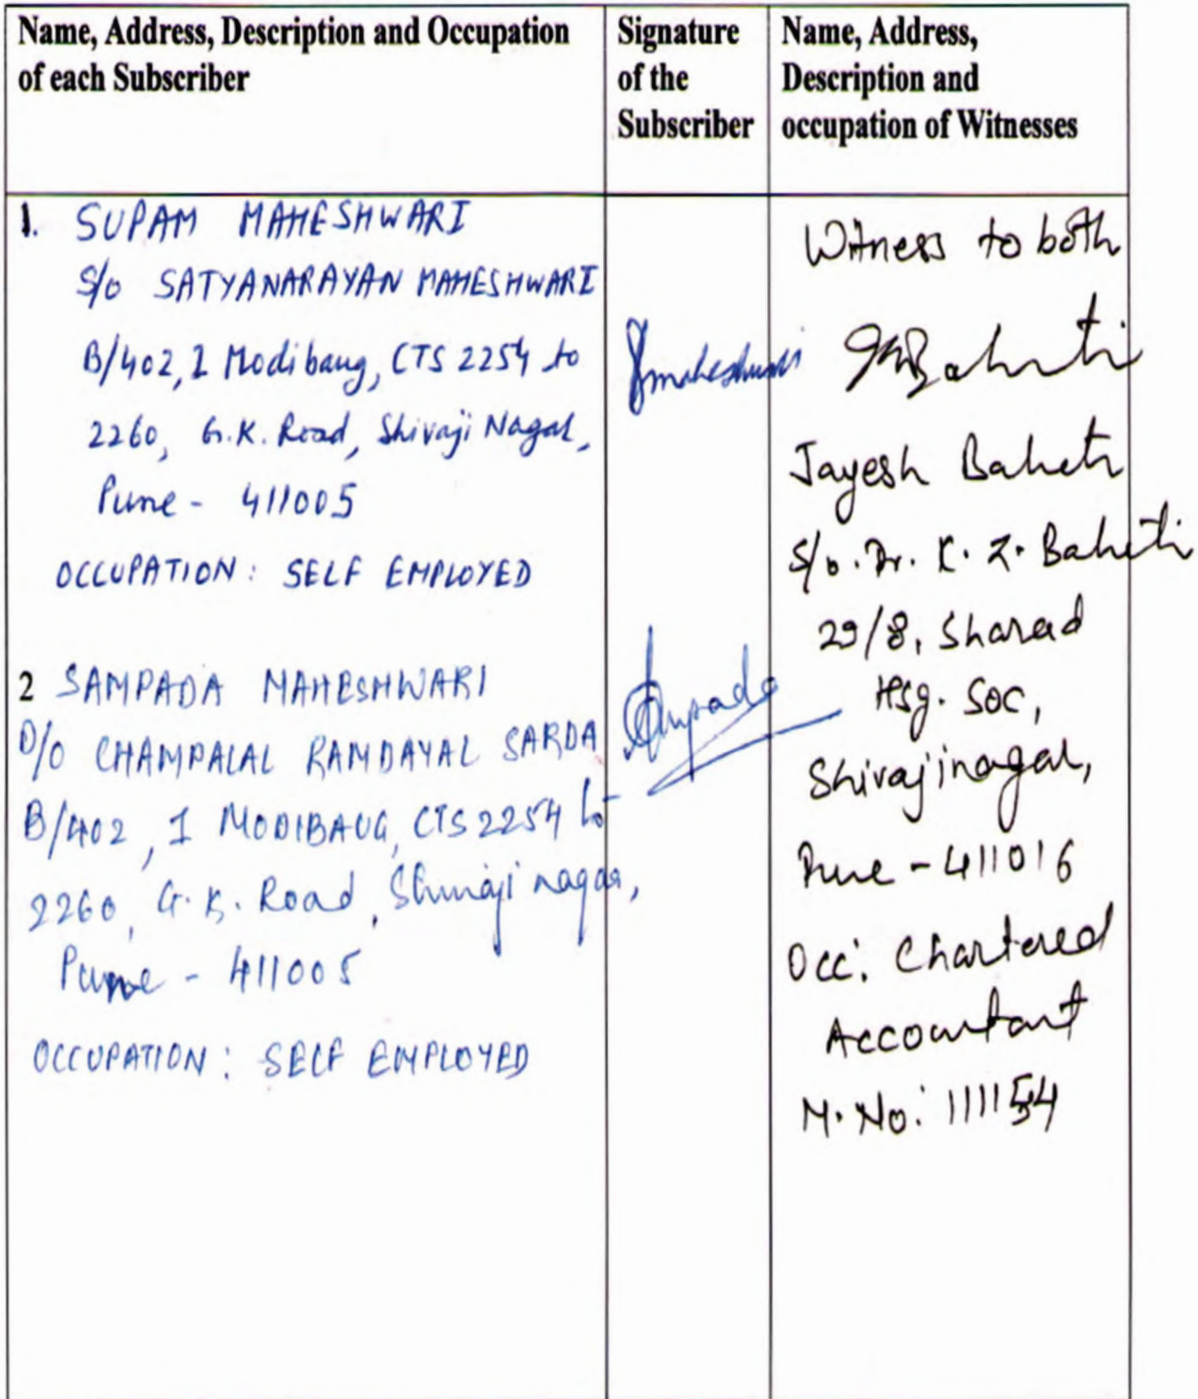 Name, Address, Description and Occupation
of each Subscriber
Signature
of the
Subscriber
Name, Address,
Description and
occupation of Witnesses
1. SUPAM MAHESHWARI
S/o SATYANARAYAN MAHESHWARI
B/402, 1 Modibaug, CTS 2254 to
2260, G.K. Road, Shivaji Nagar,
Pune - 411005
OCCUPATION: SELF EMPLOYED
2 SAMPADA MAHESHWARI
D/O CHAMPALAL RAMDAYAL SARDA
B/402, 1 MODIBAUG, CTS 2254 to
2260, G.K. Road, Shivaji nagar,
Pune - 411005
OCCUPATION: SELF EMPLOYED
Smaheshwari
Sampada
Witness to both
Baheti
Jayesh Baheti
S/o. Dr. K. Z. Baheti
29/8, Sharad
Hsg. Soc,
Shivajinagar,
Pune - 411016
Occ: Chartered
Accountant
M. No: 111154